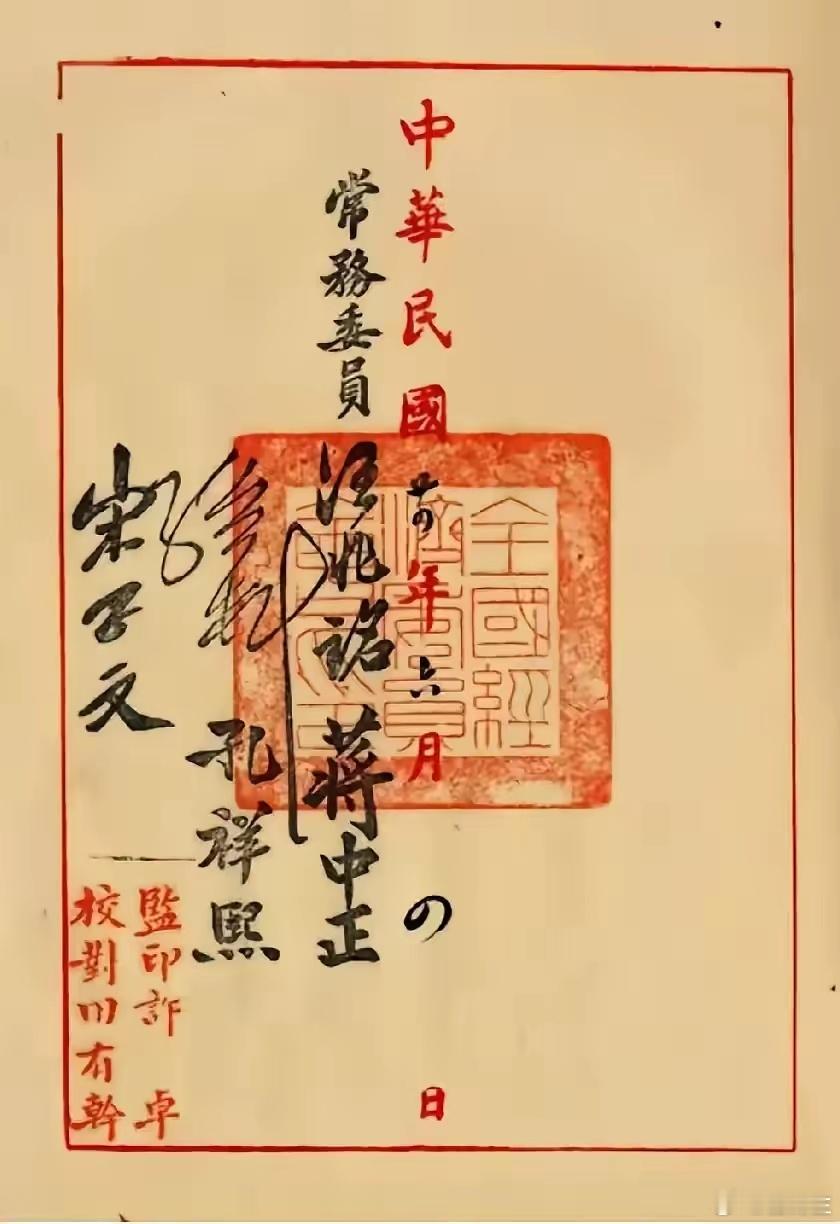 中華民國廿四年六月四日
全國經
濟委員
常務委員 汪兆銘 蔣中正
孫科 孔祥熙
宋子文
監印許 卓
校對田有幹